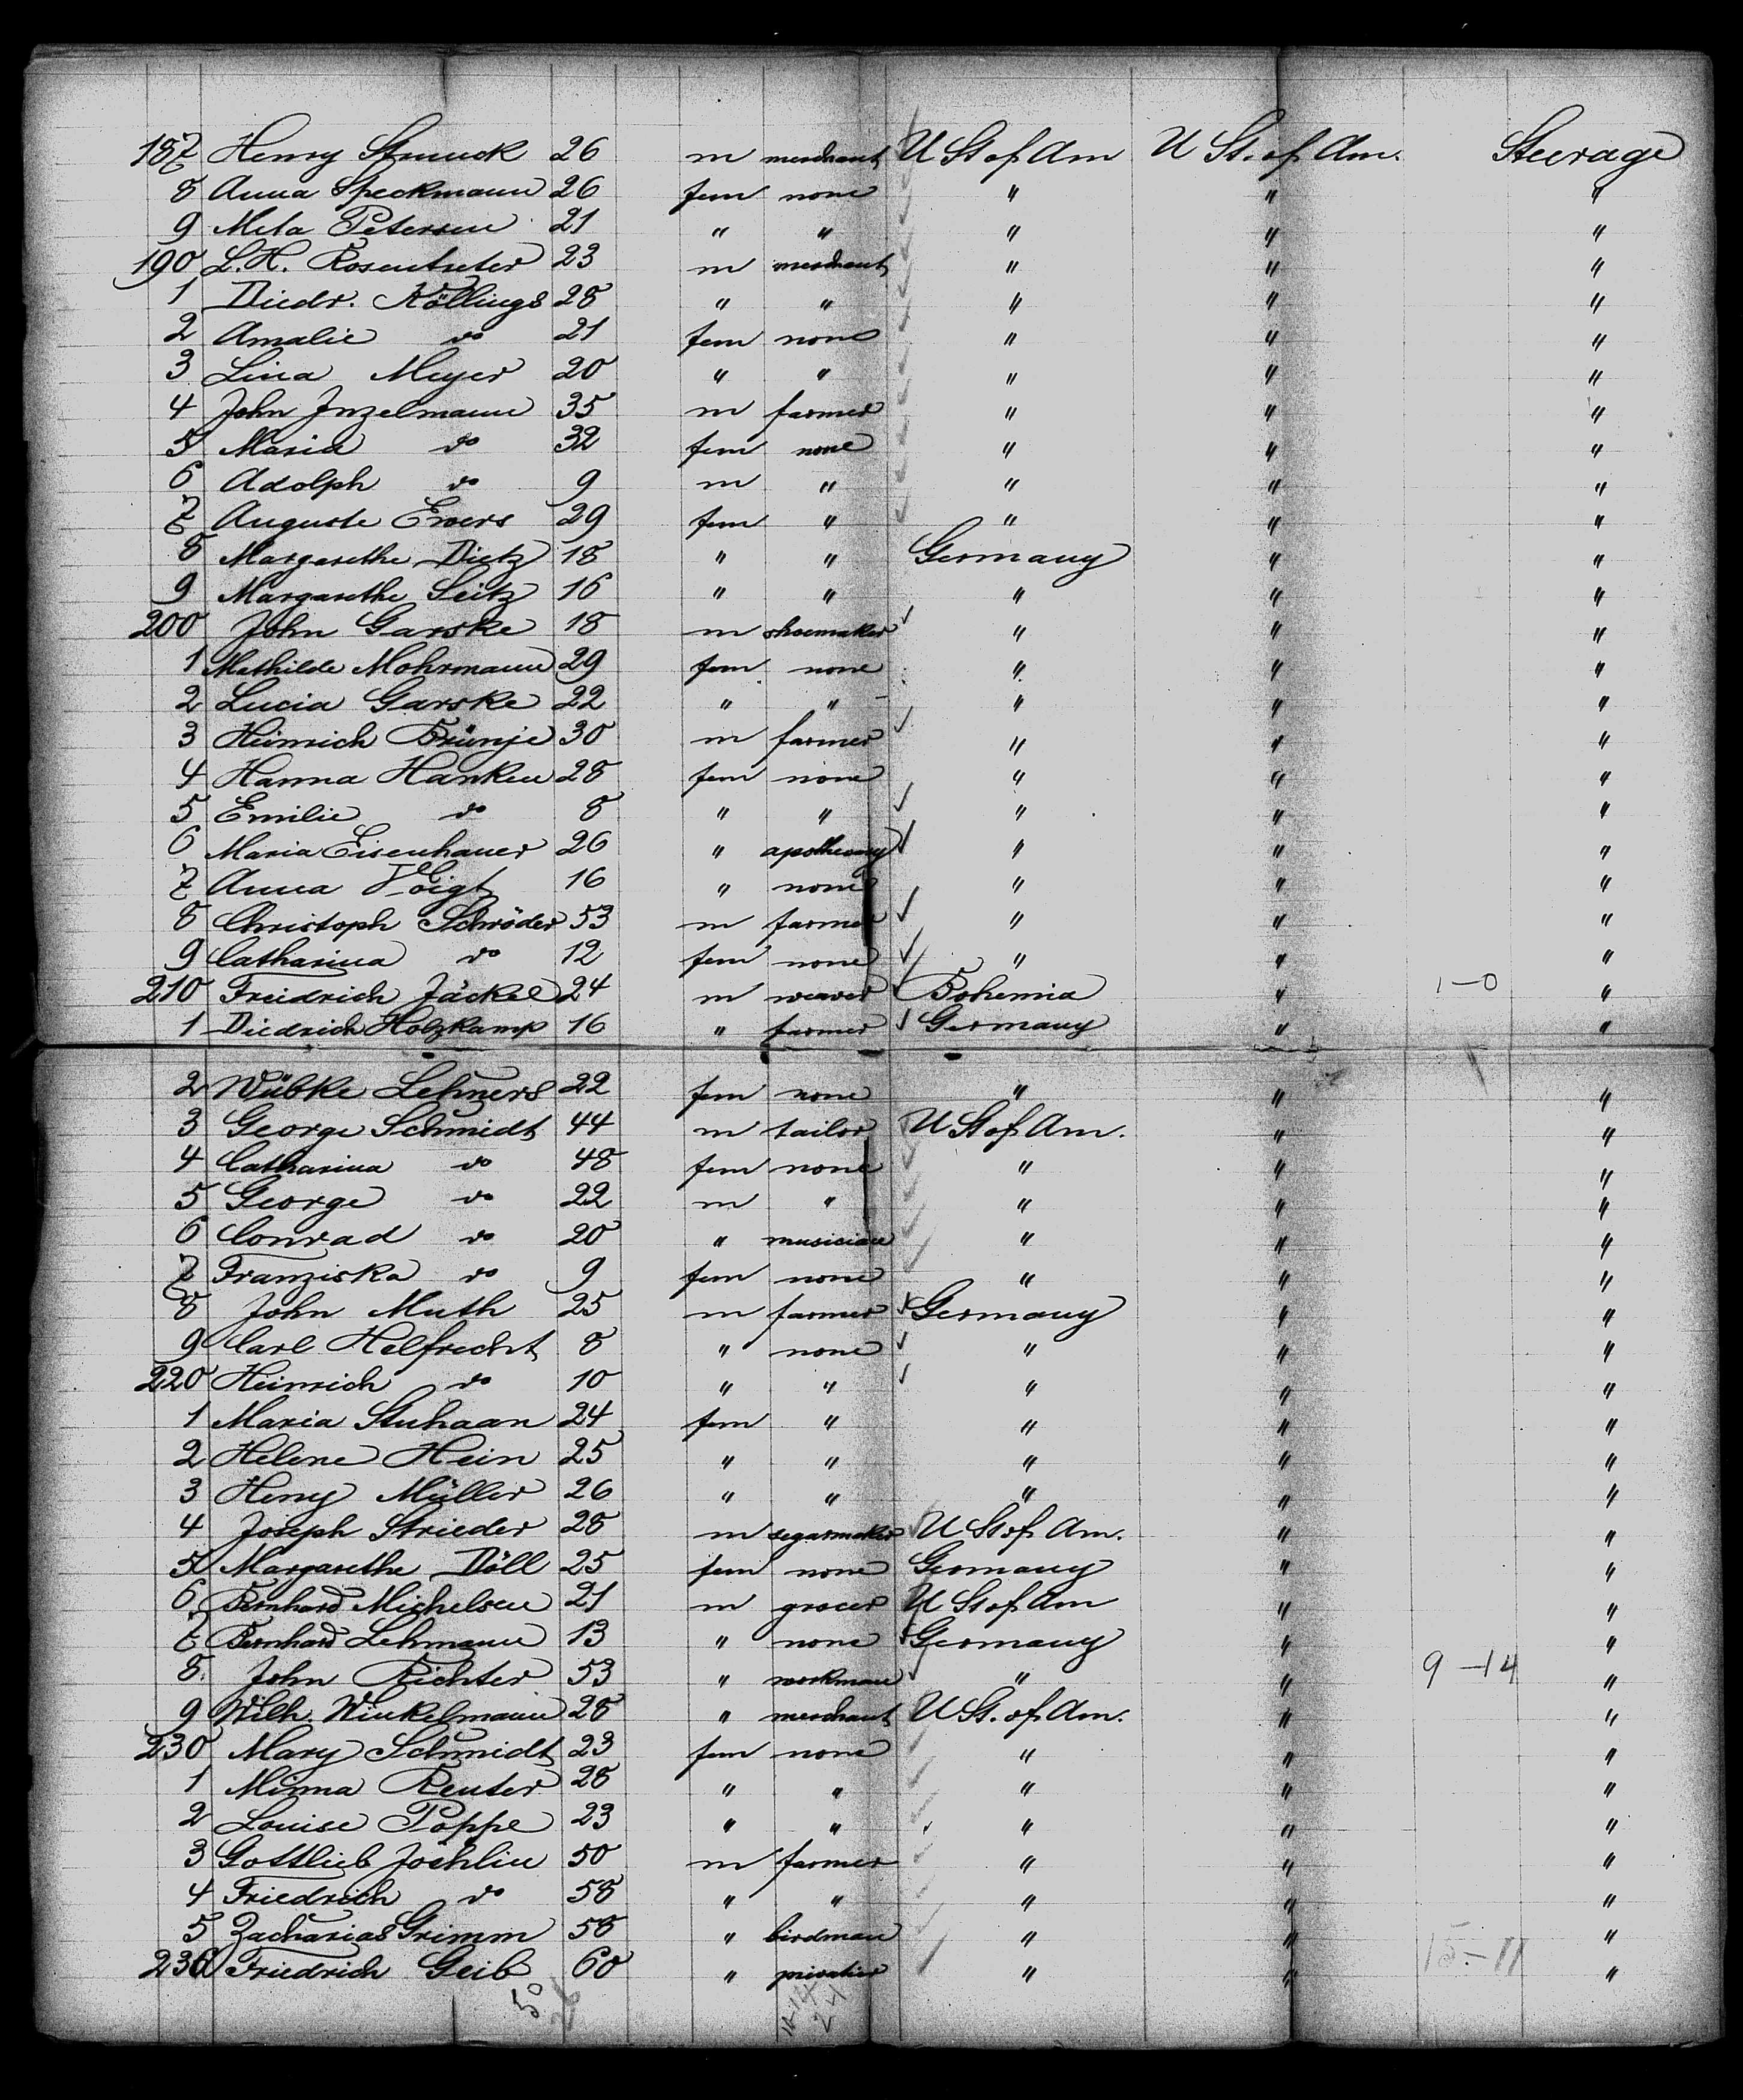 187 Henry Struuck 26 m merchant U St of Am U St. of Am. Steerage
8 Anna Speckmann 26 fem none " " "
9 Meta Petersen 21 " " " " "
190 L.H. Rosentreter 23 m merchant " " "
1 Diedr. Köllings 28 " " " " "
2 Amalie do 21 fem none " " "
3 Lina Meyer 20 " " " " "
4 John Inzelmann 35 m farmer " " "
5 Maria do 32 fem none " " "
6 Adolph do 9 m " " " "
7 Auguste Evers 29 fem " " " "
8 Margarethe Dietz 18 " " Germany " "
9 Margarethe Seitz 16 " " " " "
200 John Garske 18 m shoemaker " " "
1 Mathilde Mohrmann 29 fem none " " "
2 Lucia Garske 22 " " " " "
3 Heinrich Brünje 30 m farmer " " "
4 Hanna Hanken 28 fem none " " "
5 Emilie do 8 " " " " "
6 Maria Eisenhauer 26 " apothecary " " "
7 Anna Voigt 16 " none " " "
8 Christoph Schröder 53 m farmer " " "
9 Catharina do 12 fem none " " "
210 Freidrich Jäckel 24 m weaver Bohemia " 1-0 "
1 Diedrich Holzkamp 16 " farmer Germany " "
2 Wübke Lehmers 22 fem none " " "
3 George Schmidt 44 m tailor U St of Am. " "
4 Catharina do 48 fem none " " "
5 George do 22 m " " " "
6 Conrad do 20 " musician " " "
7 Franziska do 9 fem none " " "
8 John Muth 25 m farmer Germany " "
9 Carl Helfrecht 8 " none " " "
220 Heinrich do 10 " " " " "
1 Maria Stuhaan 24 fem " " " "
2 Helene Hein 25 " " " " "
3 Heny Müller 26 " " " " "
4 Joseph Strieder 28 m segarmaker U St of Am. " "
5 Margarethe Döll 25 fem none Germany " "
6 Bernhard Michelsen 21 m grocer U St of Am " "
7 Bernhard Lehmann 13 " none Germany " "
8. John Richter 53 " workman " " 9-14 "
9 Wilh. Winkelmann 28 " merchant U St. of Am. " "
230 Mary Schmidt 23 fem none " " "
1 Minna Reuter 28 " " " " "
2 Louise Poppe 23 " " " " "
3 Gottlieb Joehlin 50 m farmer " " "
4 Friedrich do 58 " " " " "
5 Zacharias Grimm 58 " birdman " " 15-11 "
236 Friedrich Geib 60 " privatier " " "
50 26 24